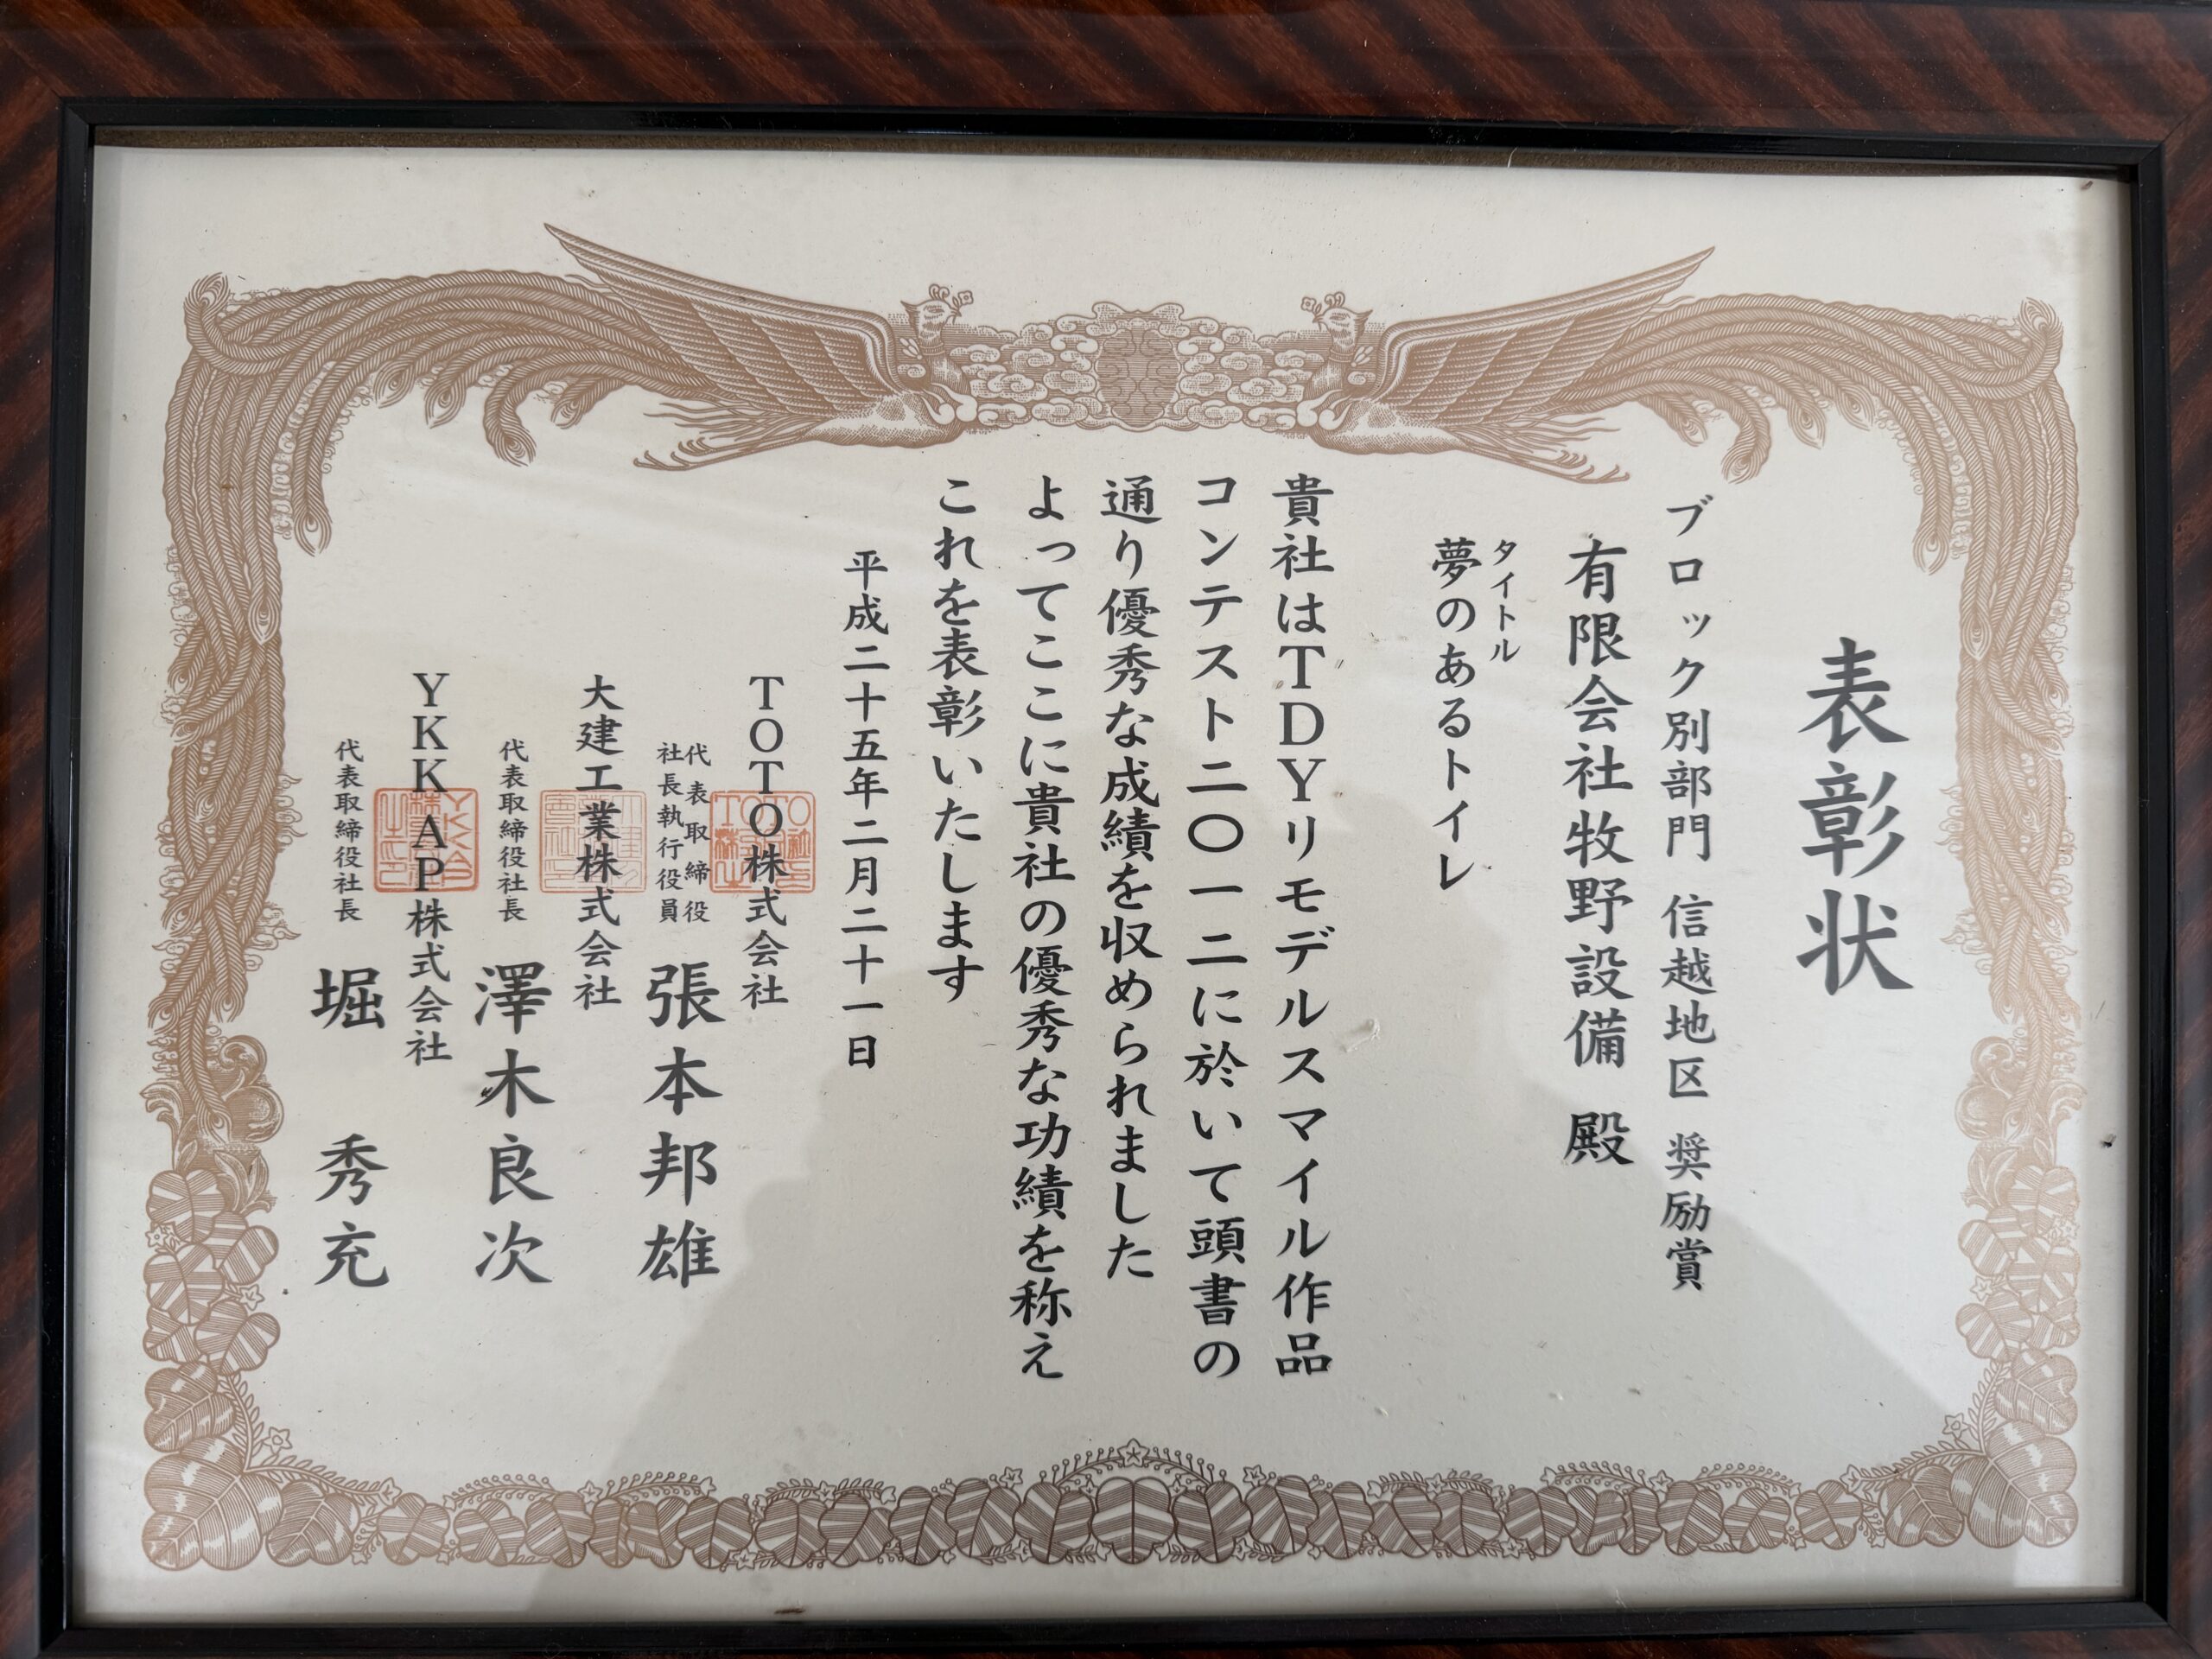 表彰状
ブロック別部門 信越地区 奨励賞
有限会社牧野設備 殿
タイトル
夢のあるトイレ
貴社はTDYリモデルスマイル作品
コンテスト二〇一二に於いて頭書の
通り優秀な成績を収められました
よってここに貴社の優秀な功績を称え
これを表彰いたします
平成二十五年二月二十一日
TOTO株式会社
代表取締役
社長執行役員
張本邦雄
大建工業株式会社
代表取締役社長 澤木良次
YKK AP株式会社
代表取締役社長 堀 秀充